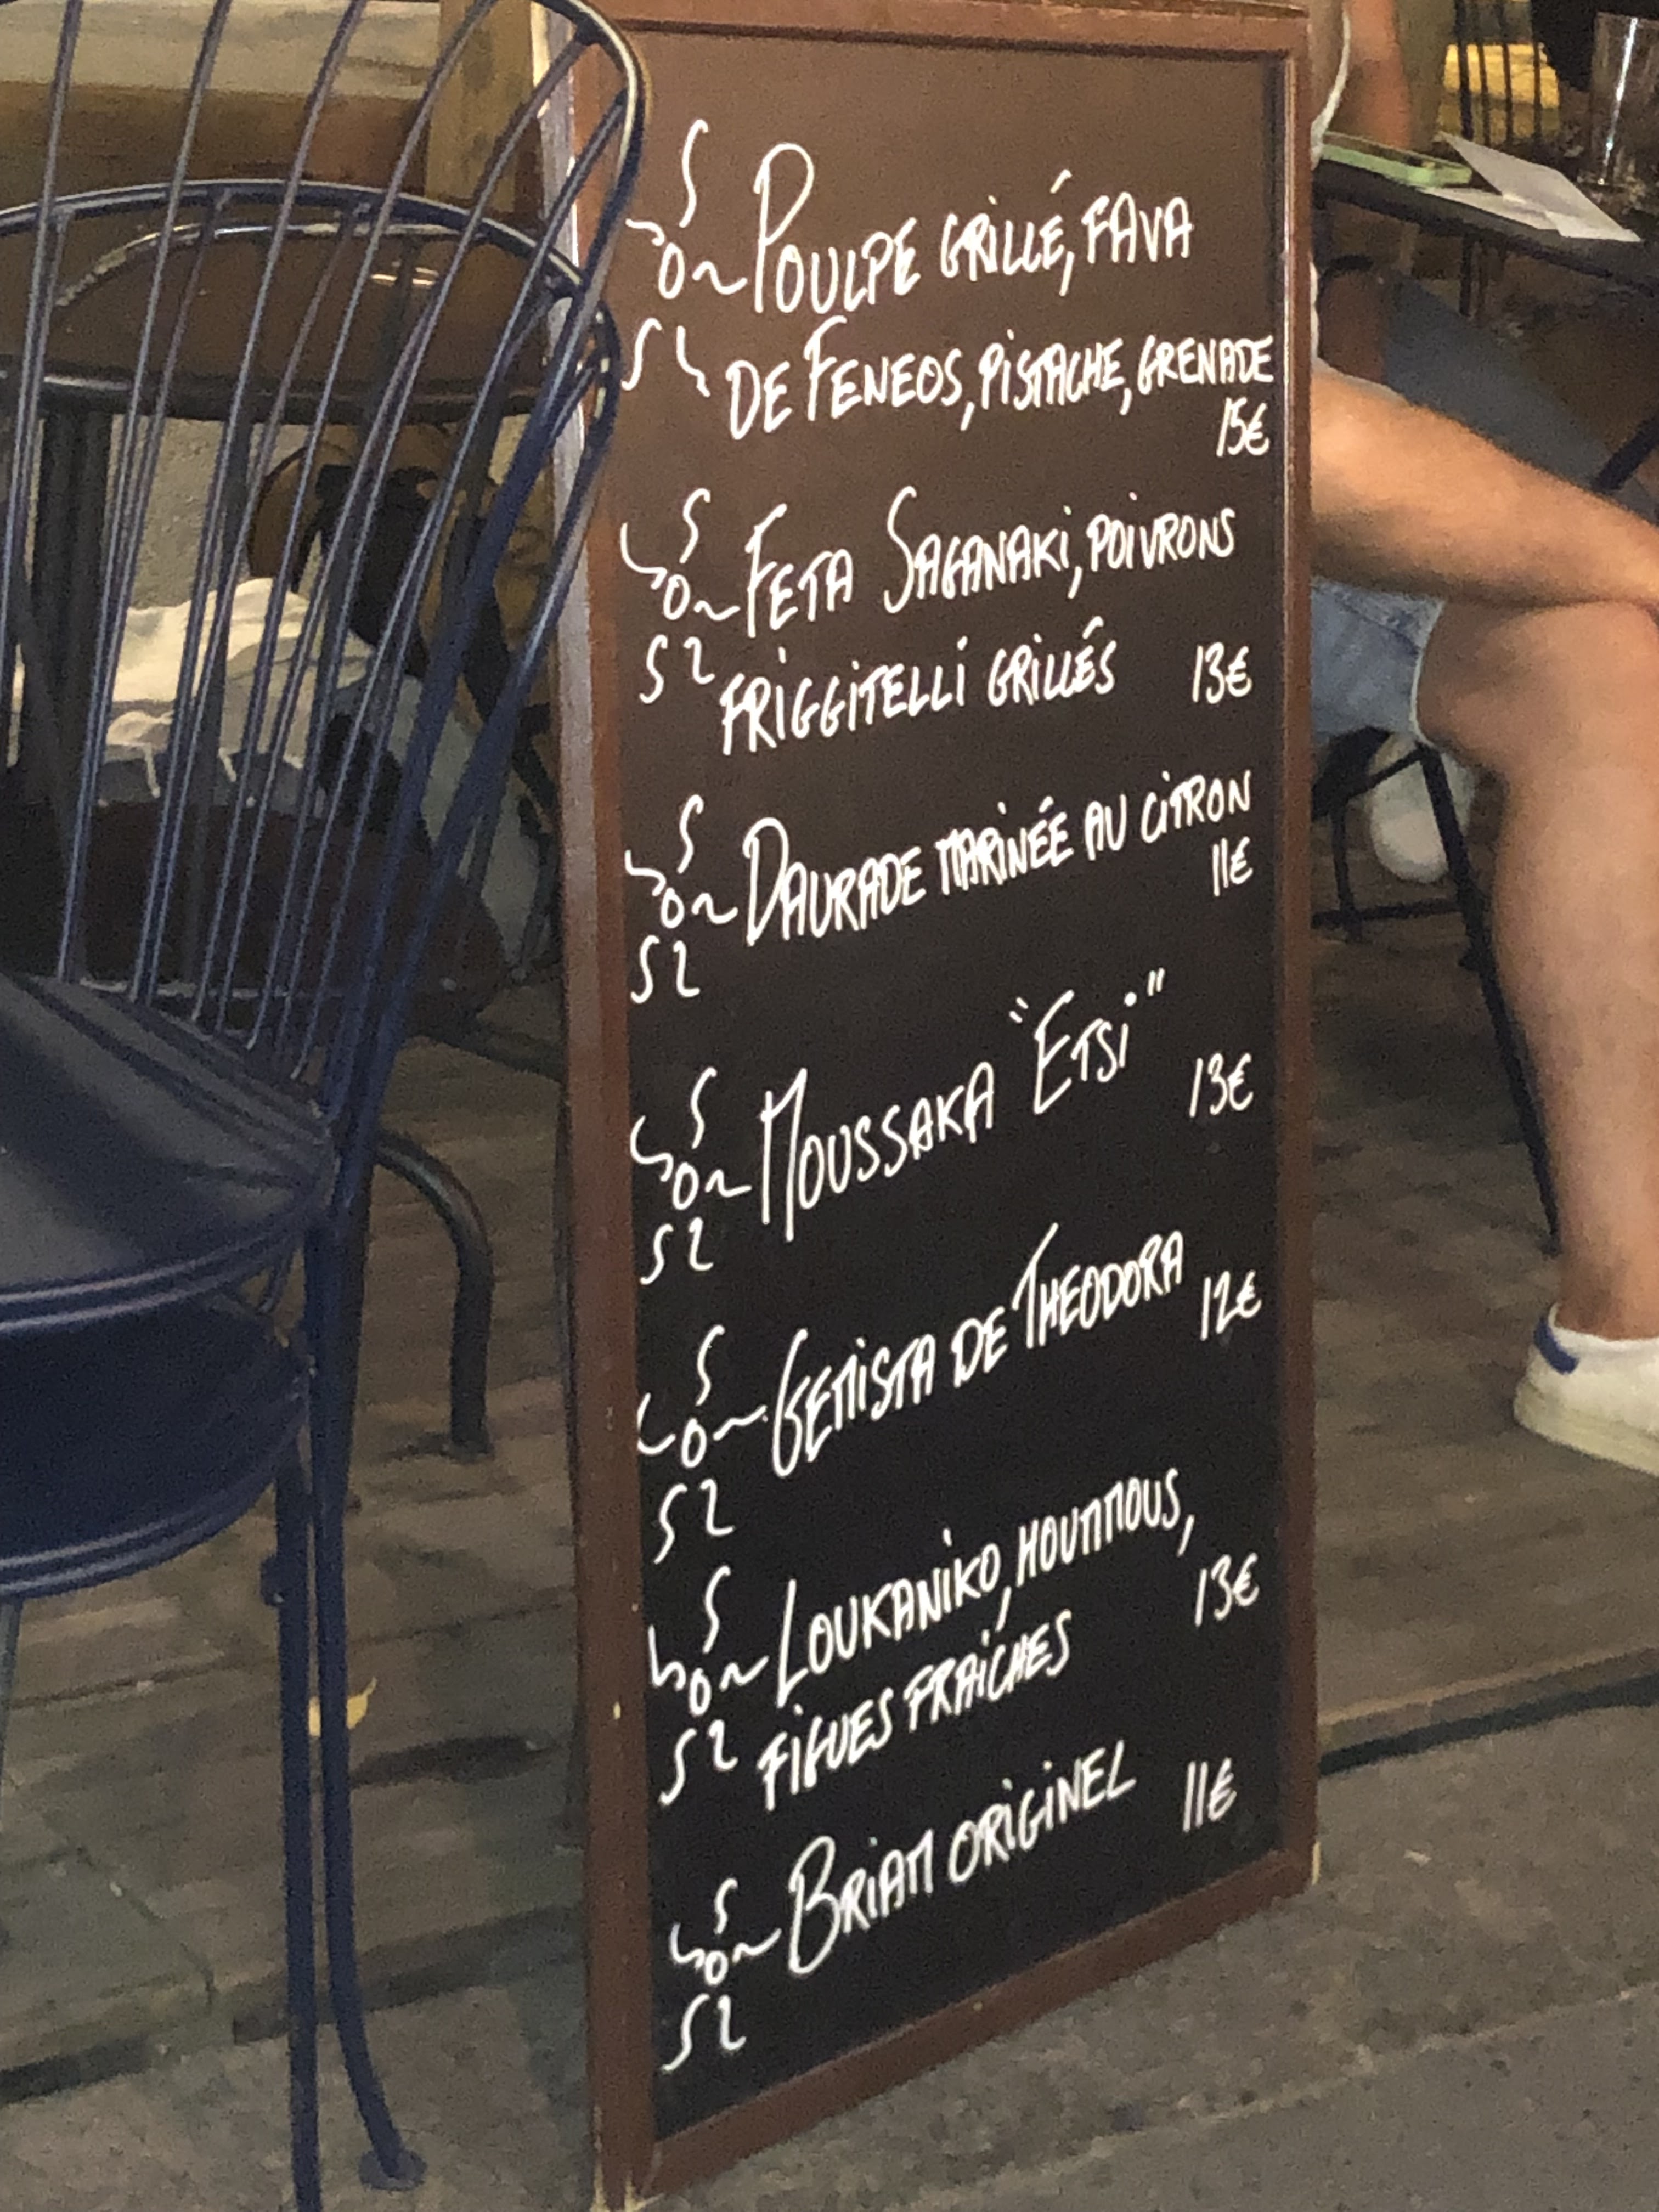 Poulpe grillé, fava
de Feneos, pistache, grenade
15€
Feta Saganaki, poivrons
friggitelli grillés 13€
Daurade marinée au citron
11€
Moussaka "Etsi" 13€
Gemista de Theodora 12€
Loukaniko, hoummous, 13€
figues fraîches
Briam originel 11€